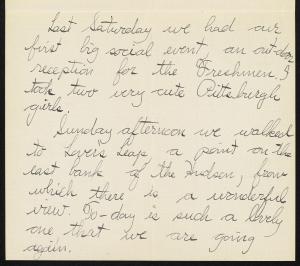 Last Saturday we had our
first big social event, an out-door
reception for the Freshmen. I
took two very cute Pittsburgh
girls.
Sunday afternoon we walked
to Lovers Leap, a point on the
east bank of the Hudson, from
which there is a wonderful
view. To-day is such a lovely
one that we are going
again.